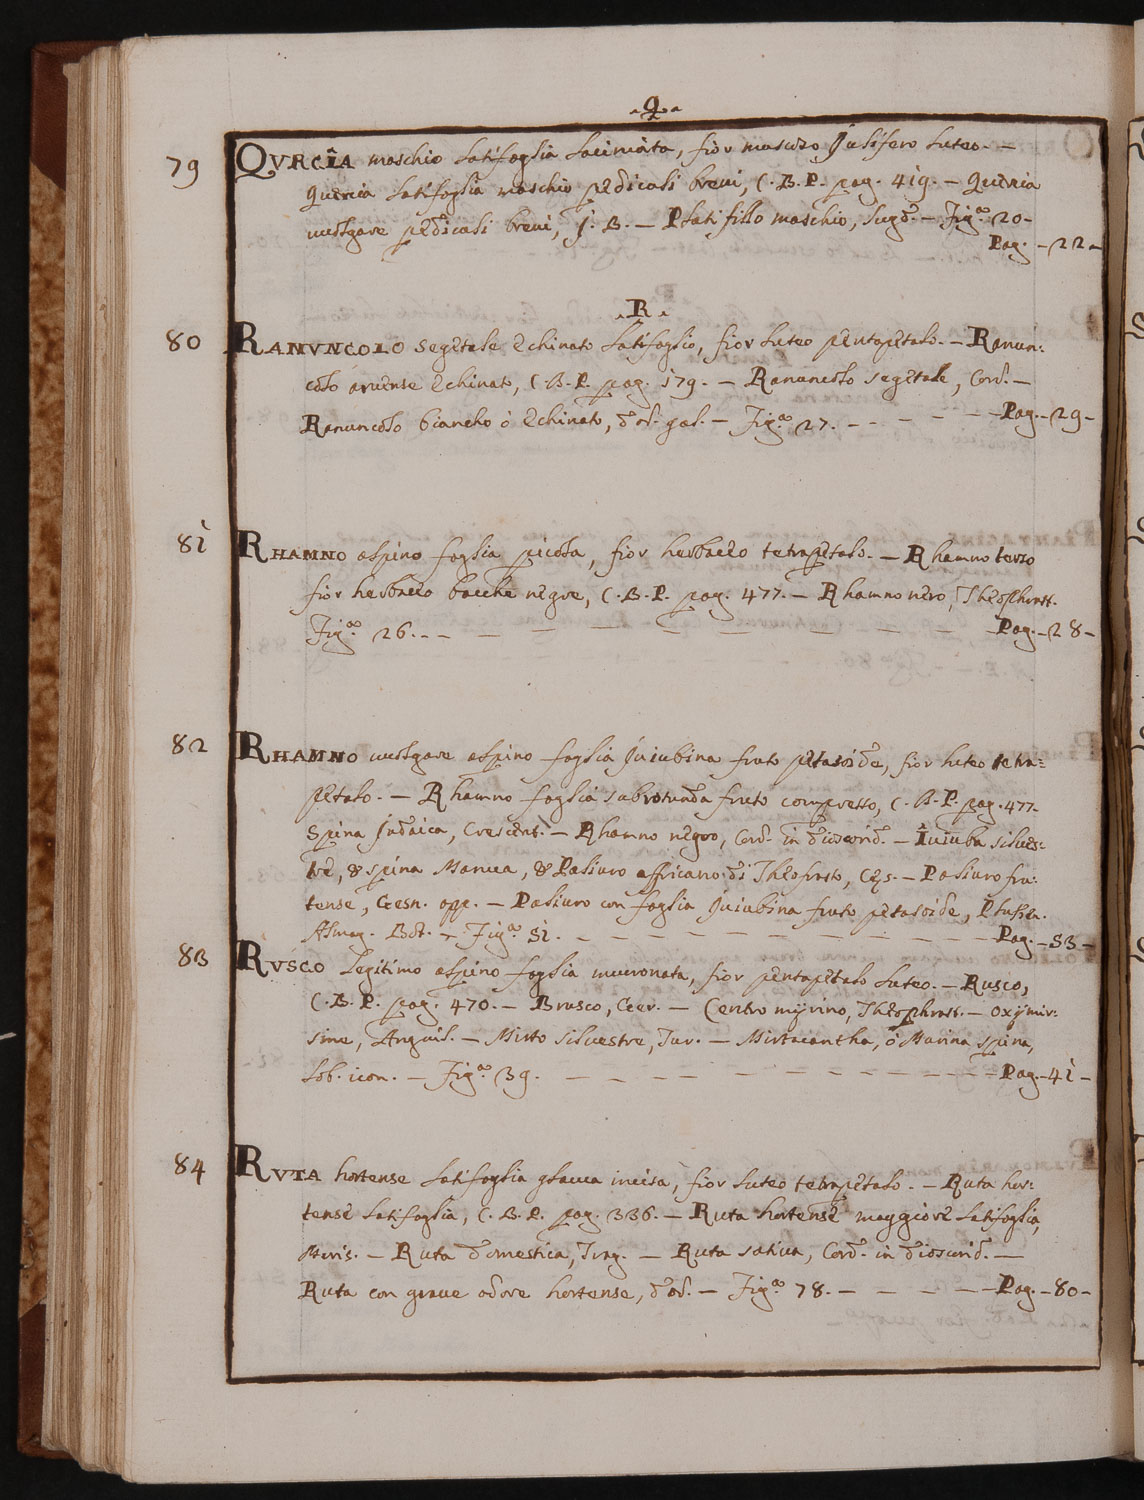 .Q.
79 QVRCIA maschio latifoglia laciniata, fior muscozo Julifero luteo. —
Quercia latifoglia maschio pedicoli brevi, C. B. P. pag. 419. — Quercia
vulgare pedicoli brevi, J. B. — Platifillo maschio, Lugd. — Fig.ᵃ 20 —
Pag. — 22 —
.R.
80 RANVNCOLO segetale echinato latifoglio, fior luteo pentapetalo. — Ranun:
colo arvense echinato, C. B. P. pag. 179. — Ranuncolo segetale, Cord. —
Ranuncolo biancho ò echinato, dod. gal. — Fig.ᵃ 27. — — — — — Pag. — 29 —
81 RHAMNO aspino foglia picola, fior herbaceo tetrapetalo. — Rhamno terzo
fior herbaceo bacche negre, C. B. P. pag. 477. — Rhamno nero, Theophrast.
Fig.ᵃ 26. — — — — — — — — — — Pag. — 28 —
82 RHAMNO vulgare aspino foglia Juiubina fruto petasoide, fior luteo tetra=
petalo. — Rhamno foglia subrotunda fruto compresso, C. B. P. pag. 477.
Spina Judaica, Crescent. — Rhamno negro, Cord. in dioscorid. — Iuiuba silves:
tre, & spina Maruca, & Paliuro affricano di Theofrasto, Ces. — Paliuro fru:
tense, Gesn. app. — Paliuro con foglia Juiubina fruto petasoide, Pluken.
Almag. Bot. — Fig.ᵃ 51. — — — — — — — — — Pag. — 53 —
83 RVSCO legitimo aspino foglia mucronata, fior pentapetalo luteo. — Rusco,
C. B. P. pag. 470. — Brusco, Ger. — Centro myrino, Theophrast. — Oxymir:
sine, Anguil. — Mirto silvestre, Tur. — Mirtacantha, ò Murina spina,
Lob. icon. — Fig.ᵃ 39. — — — — — — — — — Pag. — 41 —
84 RVTA hortense latifoglia glauca incisa, fior luteo tetrapetalo. — Ruta hor:
tense latifoglia, C. B. P. pag. 336. — Ruta hortense maggiore latifoglia,
Moris. — Ruta domestica, Trag. — Ruta sativa, Cord. in dioscorid. —
Ruta con grave odore hortense, dod. — Fig.ᵃ 78. — — — — — Pag. — 80 —